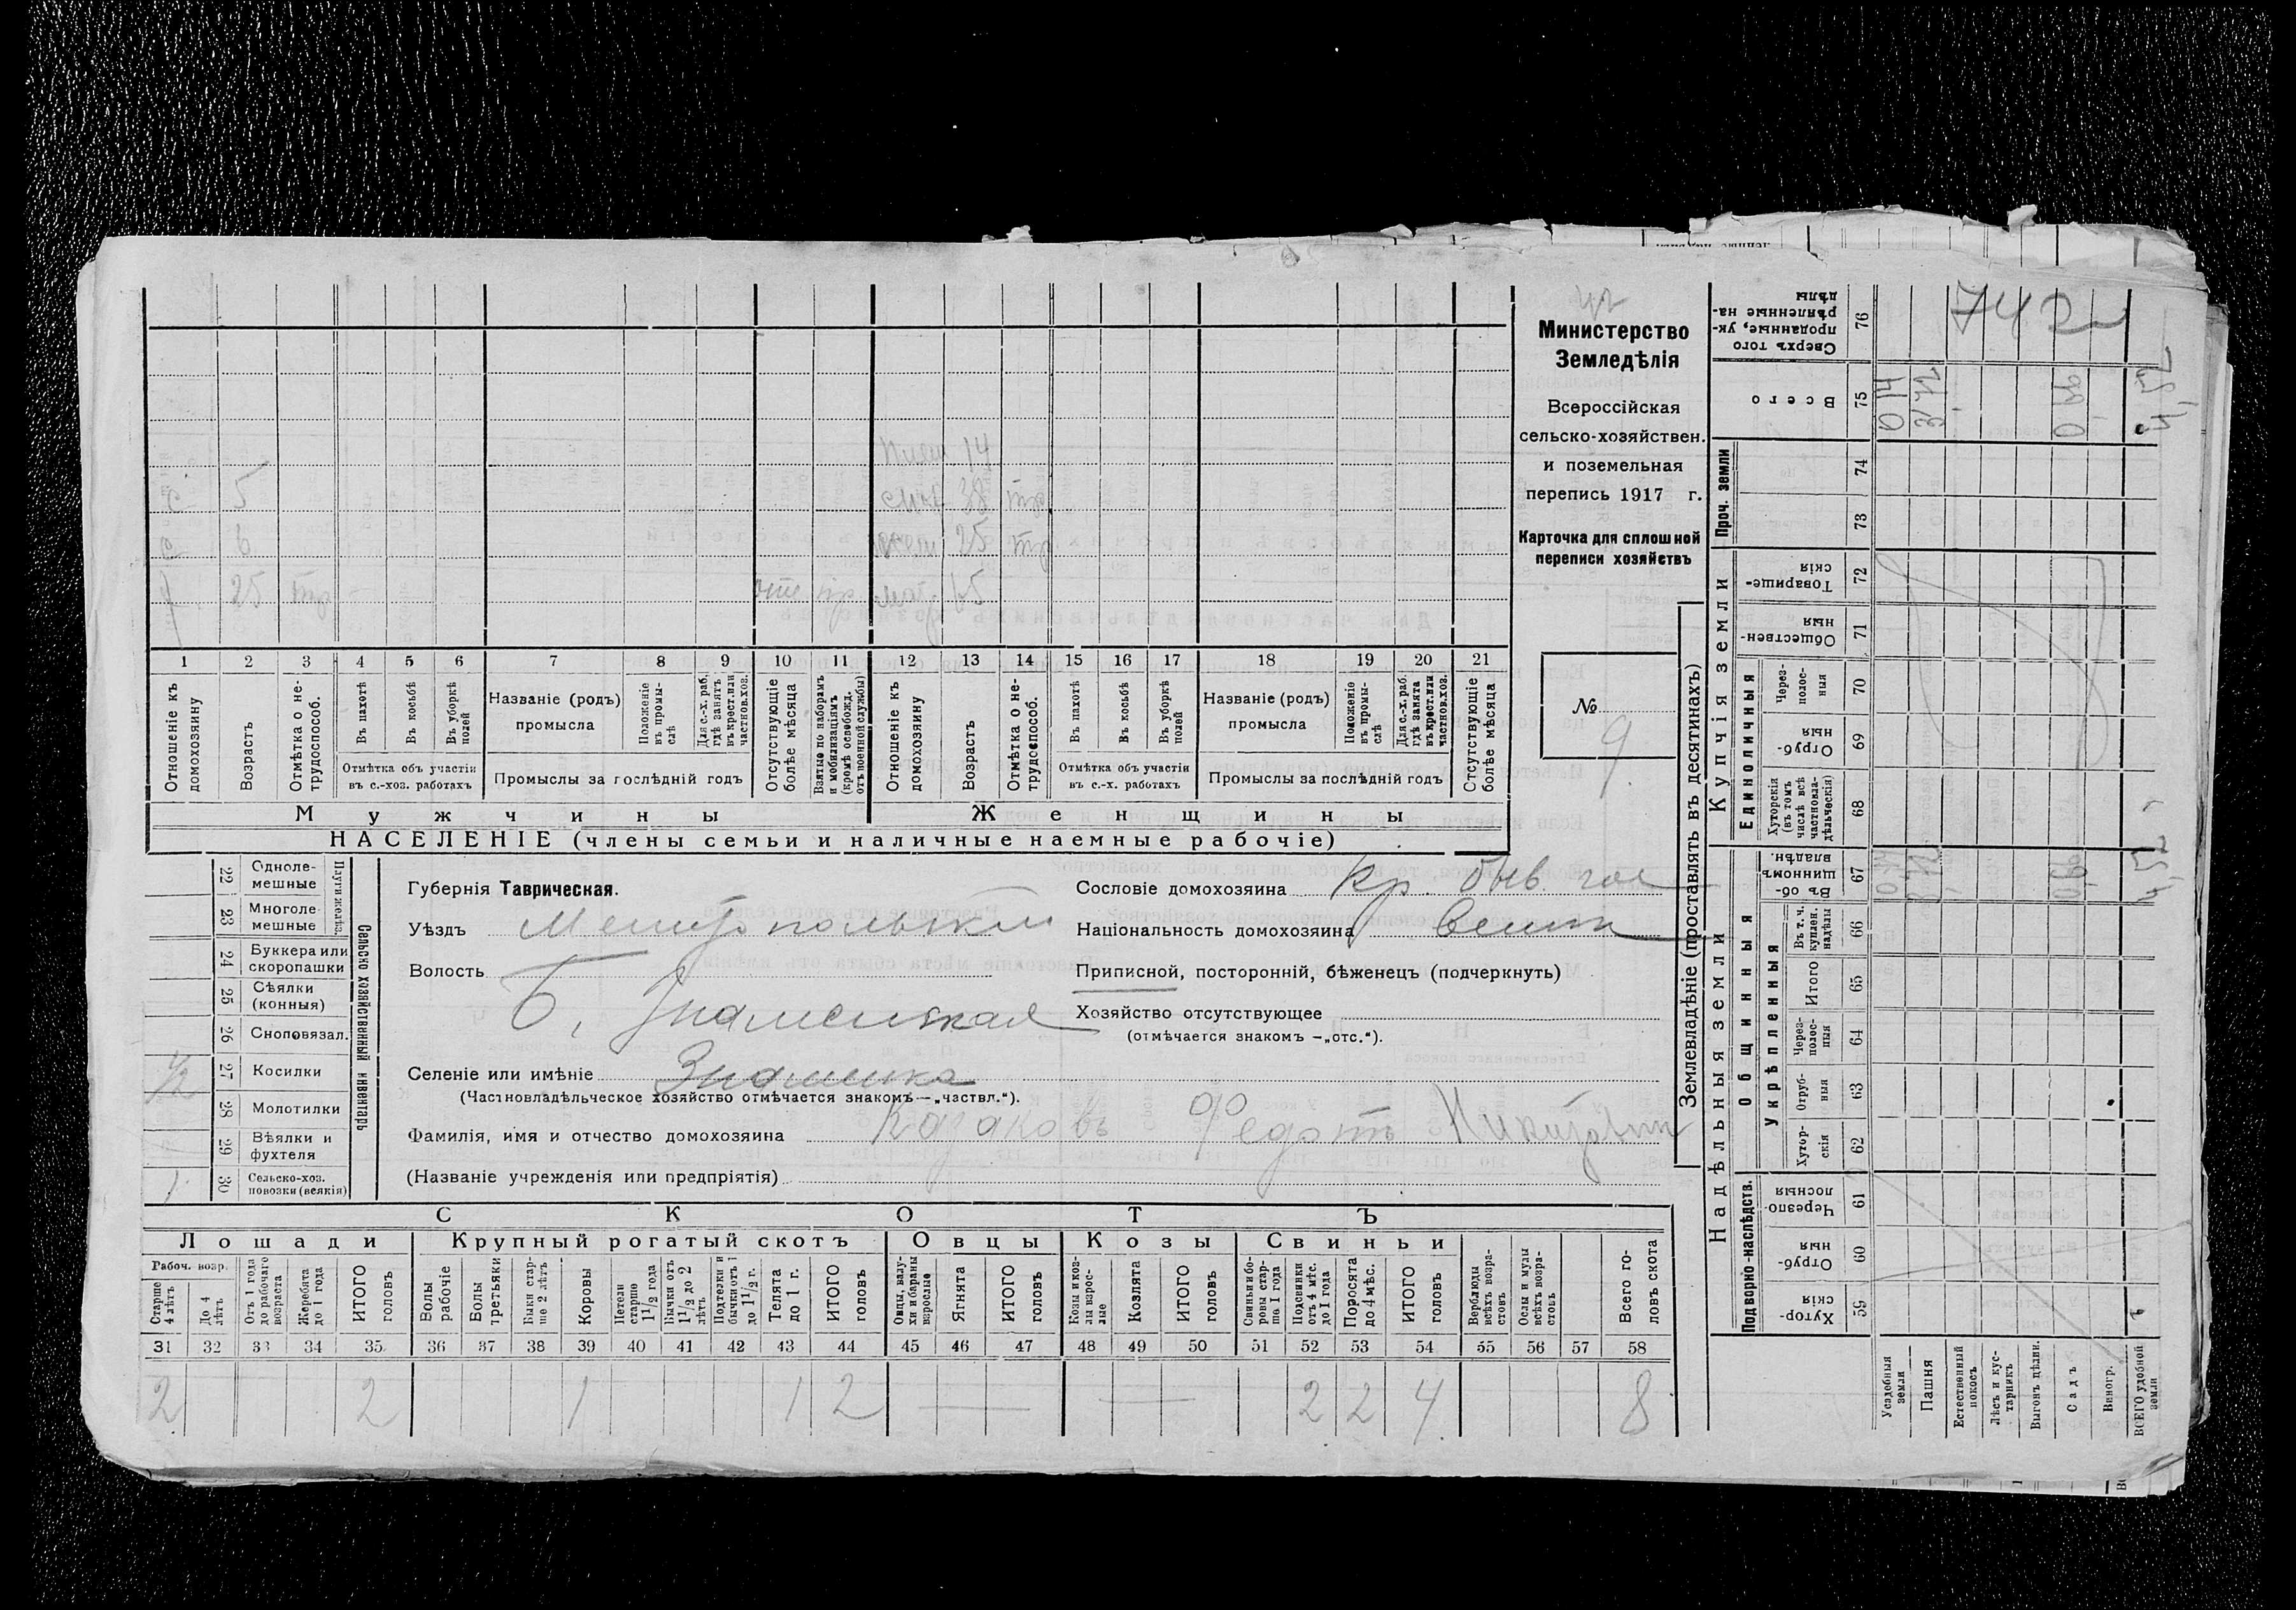 Министерство
Земледѣлія
Всероссійская
сельско-хозяйствен.
и поземельная
перепись 1917 г.
Карточка для сплошной
переписи хозяйствъ
№
9
14
с 5 38 тр
6 25 тр
25 тр мат. 65
1 2 3 4 5 6 7 8 9 10 11 12 13 14 15 16 17 18 19 20 21
Отношеніе къ домохозяину
Возрастъ
Отмѣтка о нетрудоспособ.
Въ пахотѣ
Въ косьбѣ
Въ уборкѣ полей
Отмѣтка объ участіи
въ с.-хоз. работахъ
Названіе (родъ)
промысла
Положеніе въ промыслѣ
Для с.-х. раб. гдѣ занятъ въ крест. или частнов. хоз.
Промыслы за послѣдній годъ
Отсутствующіе болѣе мѣсяца
Взятые по наборамъ и мобилизаціямъ (кромѣ освобожд. отъ военной службы)
Отношеніе къ домохозяину
Возрастъ
Отмѣтка о нетрудоспособ.
Въ пахотѣ
Въ косьбѣ
Въ уборкѣ полей
Отмѣтка объ участіи
въ с.-х. работахъ
Названіе (родъ)
промысла
Положеніе въ промыслѣ
Для с.-х. раб. гдѣ занята въ крест. или частнов. хоз.
Промыслы за послѣдній годъ
Отсутствующіе болѣе мѣсяца
Мужчины Женщины
НАСЕЛЕНІЕ (члены семьи и наличные наемные рабочіе)
Сельско хозяйственный инвентарь
Плуги желѣз.
22 Одноле-
мешные
23 Многоле-
мешные
24 Буккера или
скоропашки
25 Сѣялки
(конныя)
26 Сноповязал.
1/2 27 Косилки
28 Молотилки
29 Вѣялки и
фухтеля
1 30 Сельско-хоз.
повозки (всякія)
Губернія Таврическая.
Уѣздъ Мелитопольскій
Волость
Б. Знаменская
Селеніе или имѣніе Знаменка
(Частновладѣльческое хозяйство отмѣчается знакомъ—„частвл.“).
Фамилія, имя и отчество домохозяина Казаковъ Федотъ
(Названіе учрежденія или предпріятія)
Сословіе домохозяина Кр. быв. гос
Національность домохозяина Велик
Приписной, посторонній, бѣженецъ (подчеркнуть)
Хозяйство отсутствующее
(отмѣчается знакомъ —„отс.“).
СКОТЪ
Лошади Крупный рогатый скотъ Овцы Козы Свиньи
Рабоч. возр.
Старше 4 лѣтъ
До 4 лѣтъ
Отъ 1 года до рабочаго возраста
Жеребята до 1 года
ИТОГО головъ
Волы рабочіе
Волы третьяки
Быки старше 2 лѣтъ
Коровы
Нетели старше 1 1/2 года
Бычки отъ 1 1/2 до 2 лѣтъ
Подтелки и бычки отъ 1 до 1 1/2 г.
Телята до 1 г.
ИТОГО головъ
Овцы, валухи и бараны взрослые
Ягнята
ИТОГО головъ
Козы и козлы взрослые
Козлята
ИТОГО головъ
Свиньи и боровы старше 1 года
Подсвинки отъ 4 мѣс. до 1 года
Поросята до 4 мѣс.
ИТОГО головъ
Верблюды всѣхъ возрастовъ
Ослы и мулы всѣхъ возрастовъ
Всего головъ скота
31 32 33 34 35 36 37 38 39 40 41 42 43 44 45 46 47 48 49 50 51 52 53 54 55 56 57 58
2 2 1 1 2 — — 2 2 4 8
Землевладѣніе (проставлять въ десятинахъ)
Надѣльныя земли
Купчія земли
Проч. земли
Подворно-наслѣдств.
Общинныя
Укрѣпленныя
Единоличныя
Хуторскія 59
Отрубныя 60
Черезполосныя 61
Хуторскія 62
Отрубныя 63
Черезполосныя 64
Итого 65
Въ т. ч. куплен. надѣлы 66
Въ общинномъ владѣн. 67
Хуторскія (въ томъ числѣ всѣ частновладѣльческія) 68
Отрубныя 69
Черезполосныя 70
Общественныя 71
Товарищескія 72
73
74
Всего 75
Сверхъ того проданные, укрѣпленные надѣлы 76
742
Усадебныя земли
Пашня
Естественный покосъ
Лѣсъ и кустарникъ
Выгонъ цѣлин.
Садъ
Виногр.
ВСЕГО удобной земли